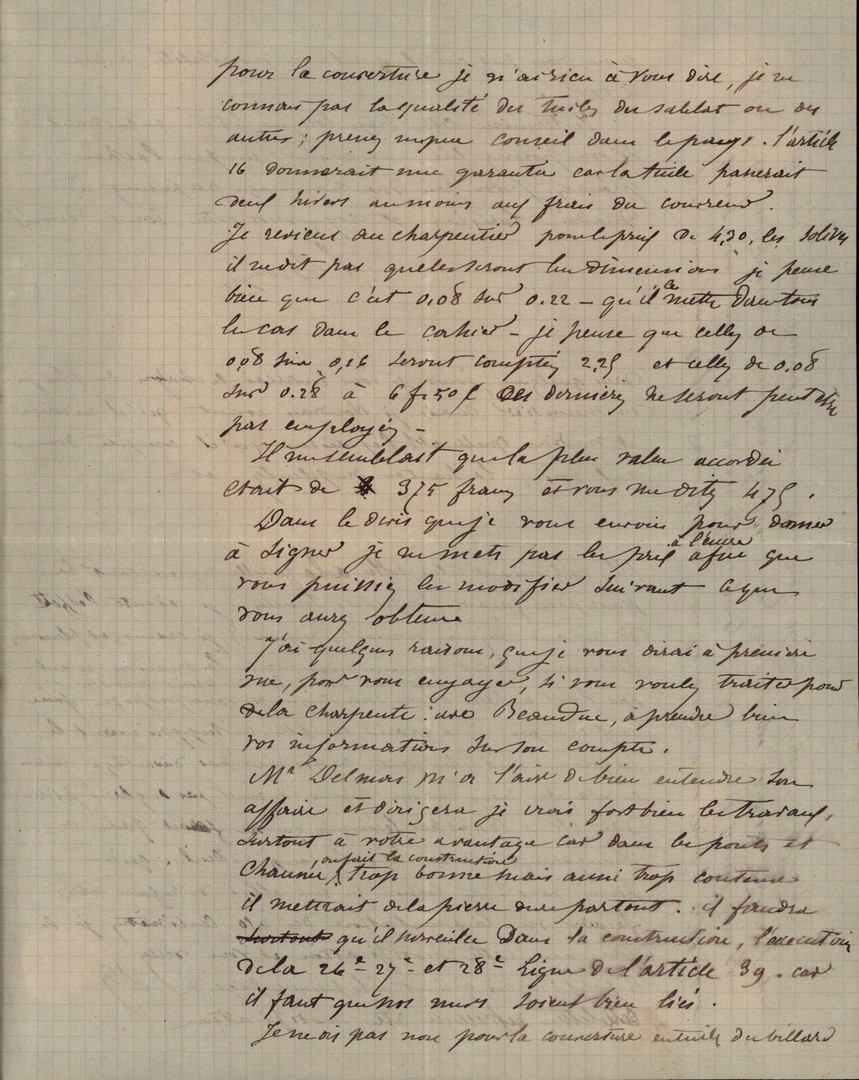 pour la couverture je n'ai rien à vous dire, je ne
connais pas la qualité des tuiles du sablat ou des
autres ; prenez un peu conseil dans le pays. l'article
16 donnerait une garantie car la tuile passerait
deux hivers au moins aux frais du couvreur.
Je reviens au charpentier pour le prix de 4,30, les solives
il ne dit pas quelles seront les dimensions je pense
bien que c'est 0.08 sur 0.22 – qu'il le mette dans tous
les cas dans le cahier – je pense que celles de
0,08 sur 0,16 seront comptées 2,25 et celles de 0.08
sur 0.28 à 6 f. 50 Ces dernières ne seront peut être
pas employées –
Il me semblait que la plus value accordée
était de 375 francs et vous me dites 475.
Dans le devis que je vous envoie pour donner
à signer je ne mets pas les prix à l'encre afin que
vous puissiez les modifier suivant ce que
vous aurez obtenu
J'ai quelques raisons, que je vous dirai à première
vue, pour vous engager, si vous voulez traiter pour
de la charpente avec Beauduc, à prendre bien
vos informations sur son compte.
Mr Delmas m'a l'air de bien entendre son
affaire et dirigera je crois fort bien les travaux,
surtout à votre avantage car dans les ponts et
chaussées on fait la construction trop bonne mais aussi trop couteuse
il mettrait de la pierre dure partout. il faudra
surtout qu'il surveille Dans la construction, l'execution
de la 26e – 27e – et 28e ligne de l'article 39. car
il faut que nos murs soient bien liés.
Je ne vois pas non pour la couverture en tuile du billard